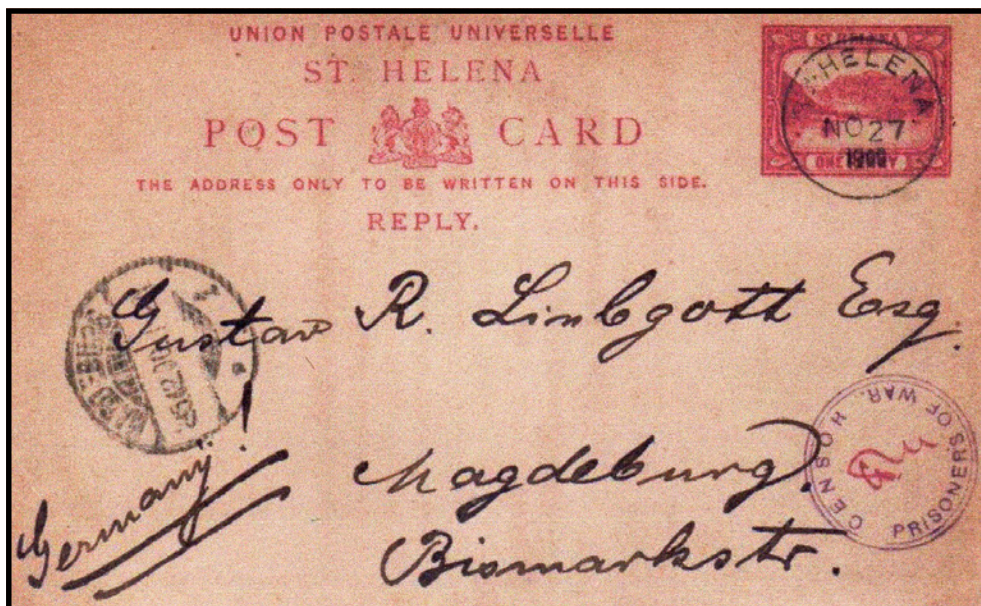 UNION POSTALE UNIVERSELLE
ST. HELENA
POST CARD
THE ADDRESS ONLY TO BE WRITTEN ON THIS SIDE.
REPLY.
ST. HELENA
ONE PENNY
ST. HELENA
NO 27
1900
Gustav R. Linbgott Esq.
Magdeburg.
Bismarkstr.
Germany!
PRISONERS OF WAR.
CENSOR